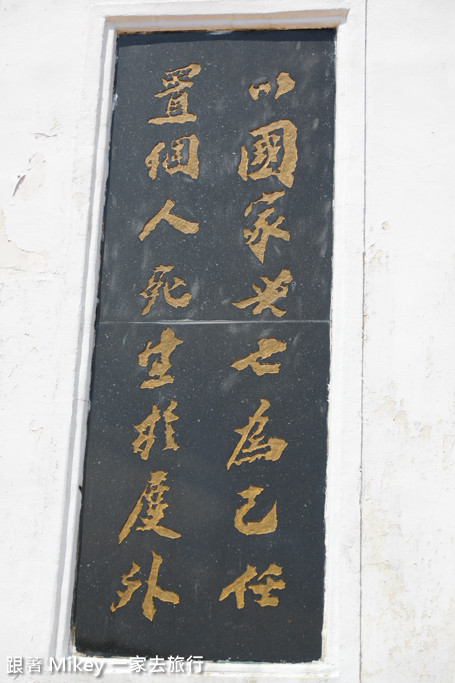 以國家興亡為己任
置個人死生於度外
跟著 Mikey 一家去旅行